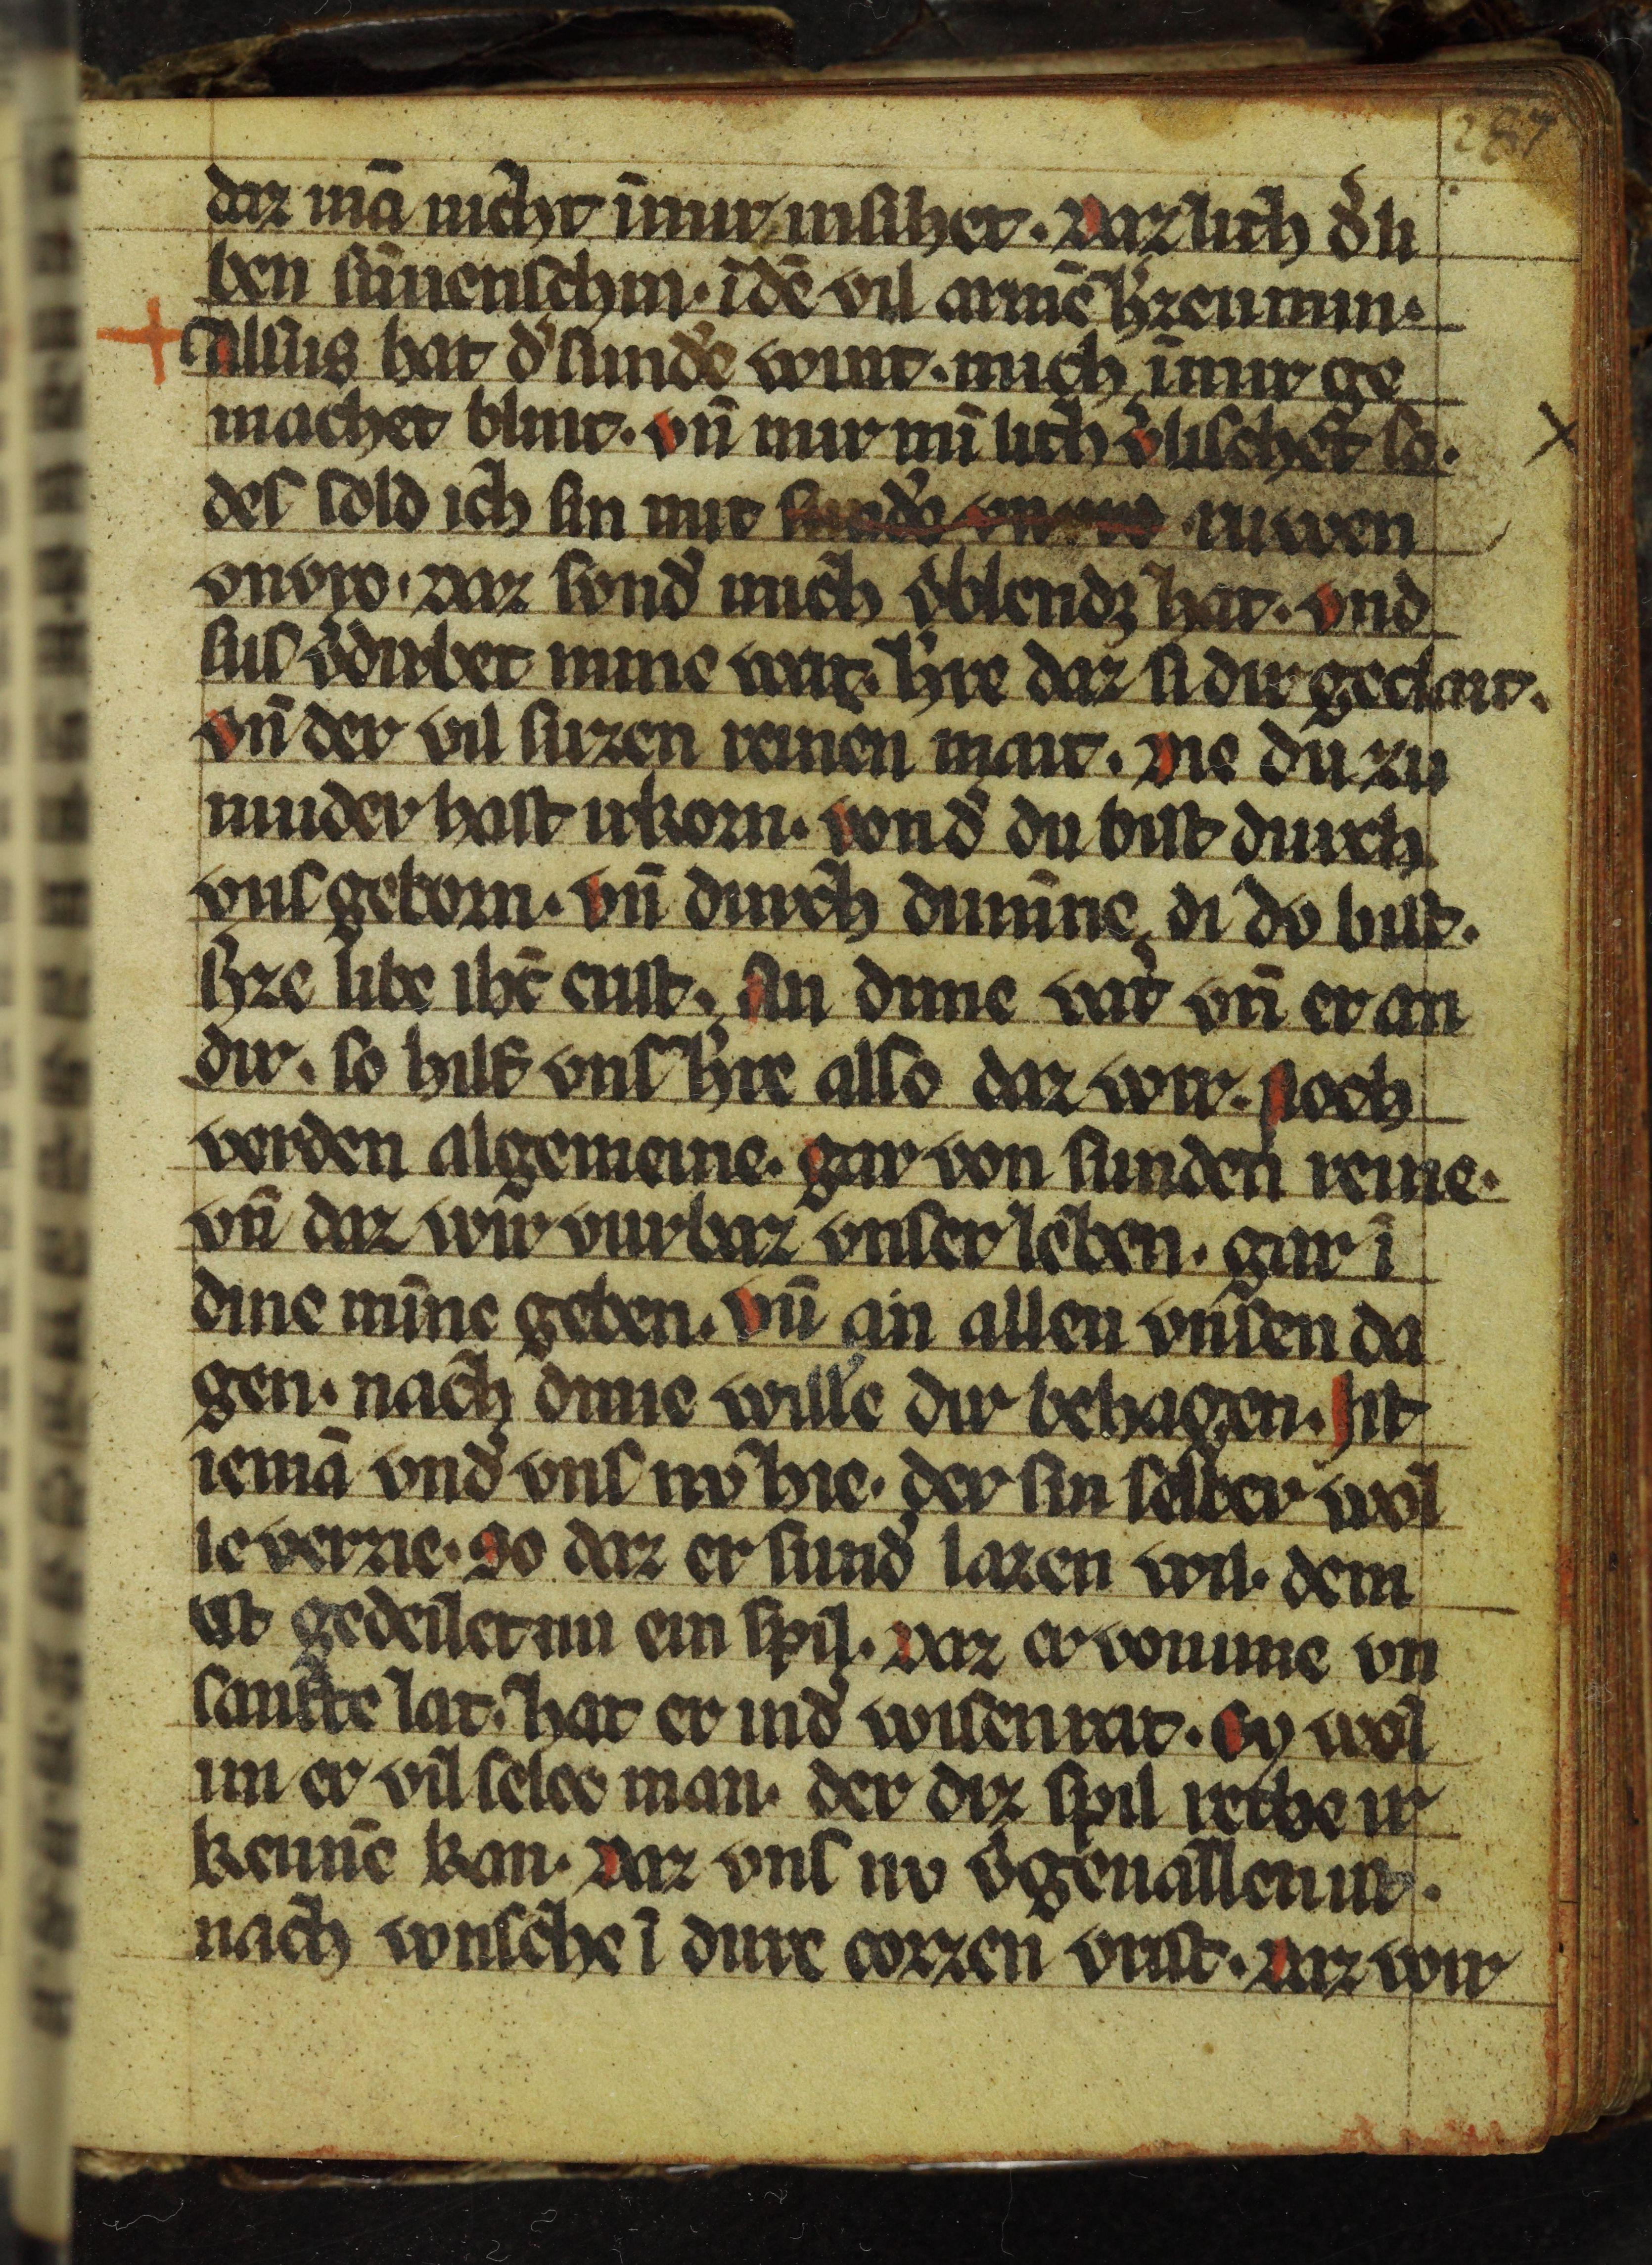 287
daz mā nicht īmir insihet. Daz lich d͛ li
ben sūnenschin. ī dē vil armē h͛zen min.
Alsus hat d͛ sunde͛ wint. mich īmir ge
machet blint. vn̄ mir mī lich v͛lischet so.
des sold ich sin mit sunde͛ vnvro ruwen
vnvro. Daz svnd͛ mich v͛blendꝫ hat. vnd
sus v͛dirbet mine wat. h͛re daz si dir geclait.
vn̄ der vil suzen reinen mait. Die du zu
muder hast irkorn. vond͛ du bist durch
vns geborn. vn̄ durch di mīne di do bist.
h͛ze libe ih̄c crist. An dime vat͛ vn̄ er an
dir. so hilf vns h͛re also daz wir. Noch
verden algemeine. gar von sunden reine.
vn̄ daz wir vurbaz vnser leben. gar ī
dine mīne geben. vn̄ an allen vnsen da
gen. nach dime wille dir behagen. Ist
iemā vnd͛ vns nv hie. der sin selber wol
le verzie. So daz er sund͛ lazen wil. dem
ist gedeilet nu ein spil. Daz er vō nime vn
sanfte lat. hat er ind͛ wisen rat. Ey wol
im er vil selec man. der diz spil rethe ir
kennē kan. Daz vns nv v͛gen allen ist.
nach wnsche ī dirre corzen vrist. Daz wir